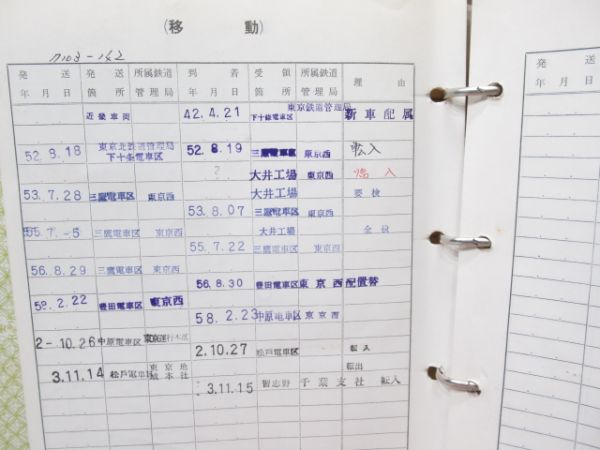 (移 動)
発送 発送 所属鉄道 到着 受領 所属鉄道 理由
年月日 箇所 管理局 年月日 箇所 管理局
近畿車両 42.4.21 下十條電車区 東京鉄道管理局 新車配属
52.8.18 東京北鉄道管理局 下十条電車区 52.8.19 三鷹電車区 東京西 転入
大井工場 東京西 入
53.7.28 三鷹電車区 東京西 大井工場 要検
53.8.07 三鷹電車区 東京西
55.7.-5 三鷹電車区 東京西 大井工場 全検
55.7.22 三鷹電車区 東京西
56.8.29 三鷹電車区 東京西
56.8.30 豊田電車区 東京西 配置替
58.2.22 豊田電車区 東京西
58.2.23 中原電車区 東京西
2-.10.26 中原電車区 2.10.27 松戸電車区 転入
3.11.14 松戸電車区 東京地域本社 転出
3.11.15 習志野 千葉支社 転入
発送
年月日